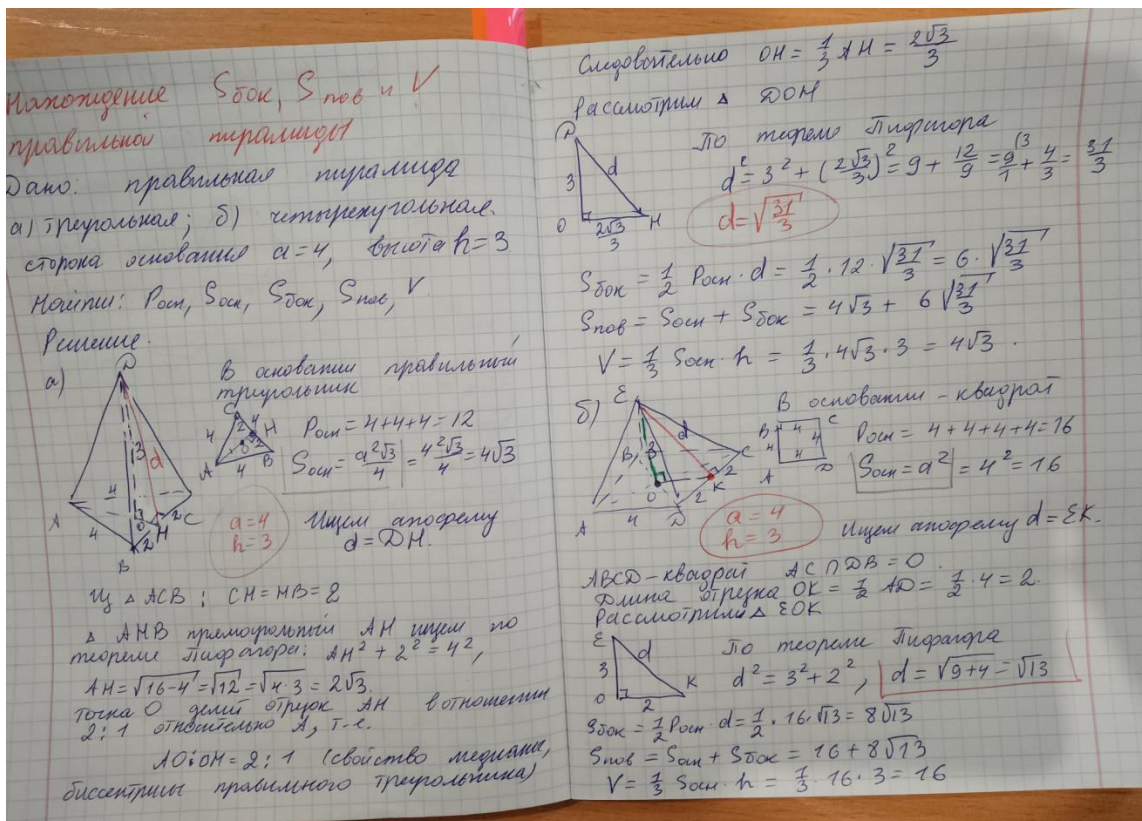 Нахождение Sбок, Sпов и V
правильной пирамиды
Дано: правильная пирамида
а) треугольная; б) четырехугольная.
сторона основания a=4, высота h=3
Найти: Pосн, Sосн, Sбок, Sпов, V
Решение.
а)
D
3
d
4
4
3
O
2
2
H
A
B
C
В основании правильный
треугольник
C
2
4
H
4
O
2
A
B
4
Pосн = 4+4+4=12
Sосн = a²√3/4 = 4²√3/4 = 4√3
a=4
h=3
Ищем апофему
d=DH.
Из △ ACB: CH=HB=2
△ AHB прямоугольный AH ищем по
теореме Пифагора: AH² + 2² = 4²,
AH=√16-4=√12=√4·3 = 2√3.
точка O делит отрезок AH в отношении
2:1 относительно A, т.е.
AO:OH=2:1 (свойство медианы,
биссектрисы правильного треугольника)
Следовательно OH = 1/3 AH = 2√3/3
Рассмотрим △ DOH
D
3
d
O
2√3/3
H
По теореме Пифагора
d² = 3² + (2√3/3)² = 9 + 12/9 = 9/1 (3 + 4/3 = 31/3
d=√31/3
Sбок = 1/2 Pосн · d = 1/2 · 12 · √31/3 = 6 · √31/3
Sпов = Sосн + Sбок = 4√3 + 6√31/3
V = 1/3 Sосн · h = 1/3 · 4√3 · 3 = 4√3.
б)
E
d
B
3
C
2
K
O
2
A
4
D
В основании - квадрат
B
4
C
4
4
4
A
D
Pосн = 4+4+4+4=16
Sосн = a² = 4² = 16
a=4
h=3
Ищем апофему d=EK.
ABCD-квадрат AC ∩ DB = O.
Длина отрезка OK = 1/2 AD = 1/2 · 4 = 2.
Рассмотрим △ EOK
E
3
d
O
2
K
По теореме Пифагора
d² = 3² + 2², d = √9+4 = √13
Sбок = 1/2 Pосн · d = 1/2 · 16 · √13 = 8√13
Sпов = Sосн + Sбок = 16 + 8√13
V = 1/3 Sосн · h = 1/3 · 16 · 3 = 16